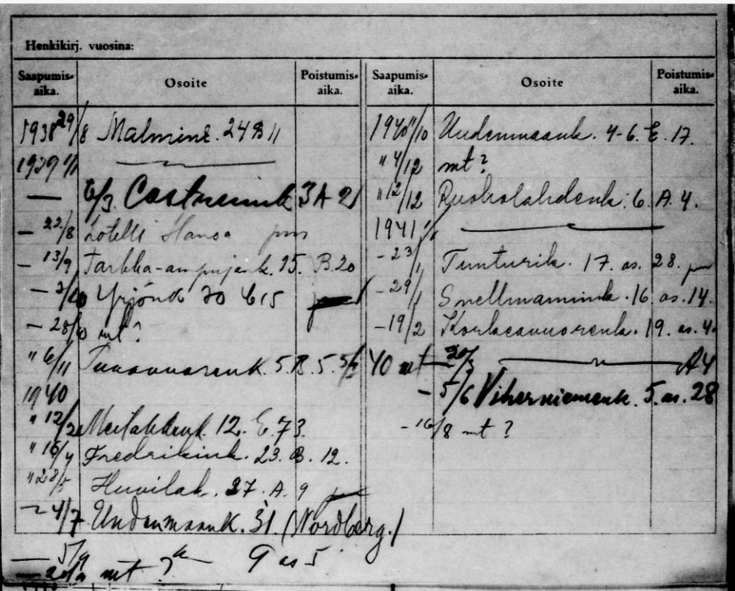 Henkikirj. vuosina:
Saapumis-aika. Osoite Poistumis-aika.
1938 29/8 Malmink. 24 B 11
1939 1/1
— 6/3 Castrenink 3 A 21
— 22/8 hotelli Hansa
— 13/9 Tarkka-ampujank. 15. B. 20
— 3/10 Yrjönk 30 C 15
— 28/10 mt?
" 6/11 5. B. 5. 5/2 40 mt
1940
" 12/2 Meilahdenk. 12. E. 73.
" 16/4 Fredrikink. 23. B. 12.
" 28/5 Huvilak. 27. A. 9
— 4/7 Uudenmaank. 31 (Nordberg.)
— 5/9 9 as 5
mt?
Saapumis-aika. Osoite Poistumis-aika.
1940 /10 Uudenmaank. 4-6. E. 17.
" 4/12 mt?
" 12/12 Ruoholahdenk. 6. A. 4.
1941 1/1
— 23/1 Tunturik. 17. as. 28.
— 29/1 Snellmanink. 16. as. 14.
— 19/2 Korkeavuorenk. 19. as. 4.
A 4
— 5/6 Viherniemenk. 5. as. 28
— 16/8 mt?